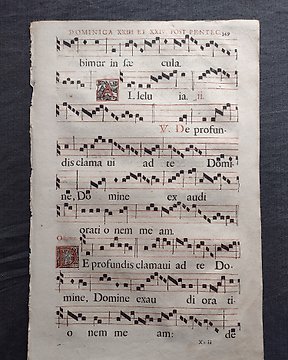 DOMINICA XXIII ET XXIV POST PENTEC. 349
bimur in sæ cula.
A L lelu ia. ij.
V. De profun-
dis clama ui ad te Domi
ne, Do mine ex audi
orati o nem me am.
D E profundis clamaui ad te Do-
mine, Domine exau di ora ti-
o nem me am: de